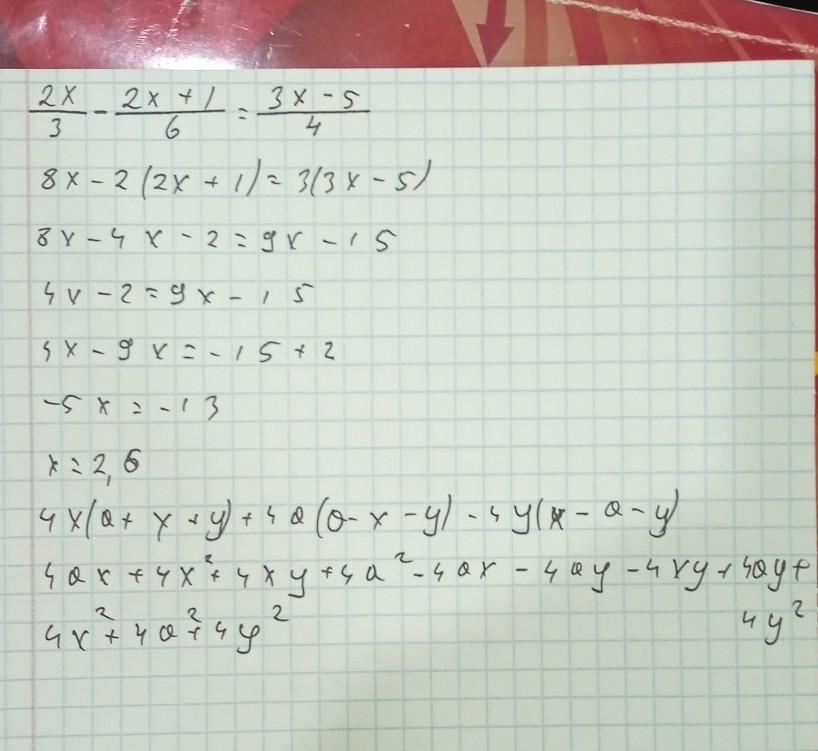 2x/3 - 2x + 1/6 = 3x - 5/4
8x - 2(2x + 1) = 3(3x - 5)
8x - 4x - 2 = 9x - 15
4x - 2 = 9x - 15
4x - 9x = -15 + 2
-5x = -13
x = 2,6
4x(a + x + y) + 4a(a - x - y) - 4y(x - a - y)
4ax + 4x² + 4xy + 4a² - 4ax - 4ay - 4xy + 4ay +
4x² + 4a² + 4y² 4y²